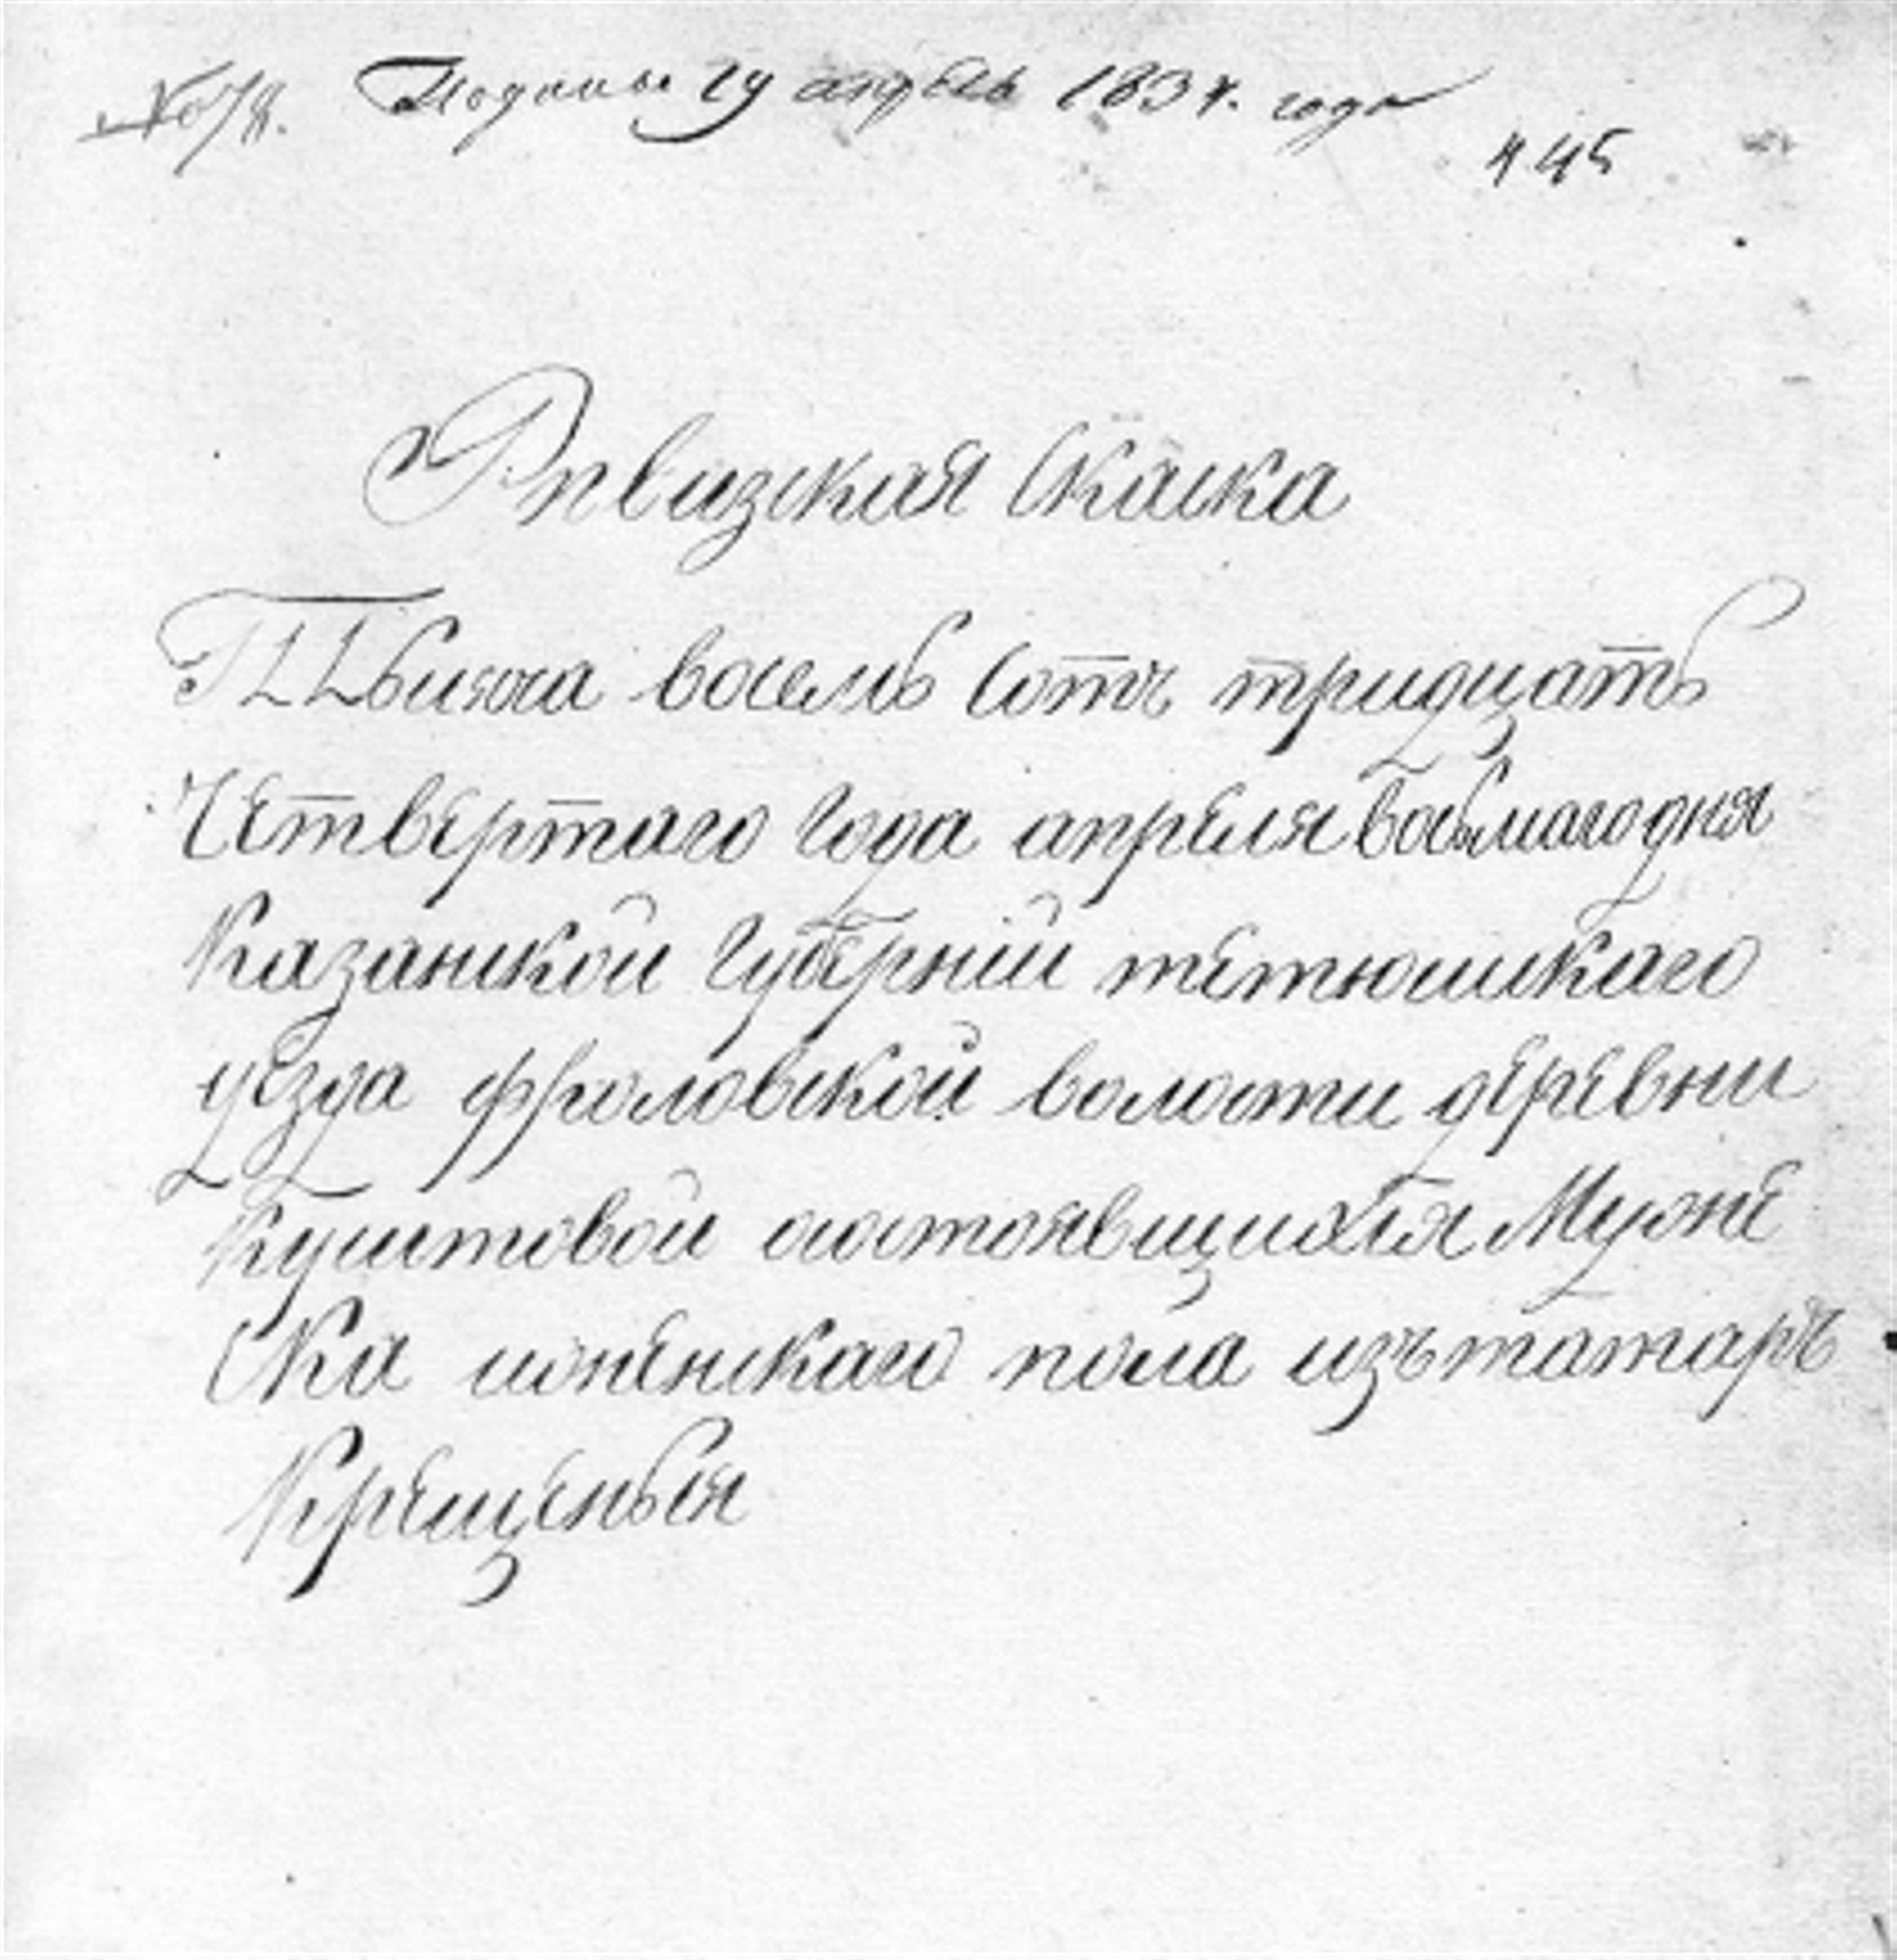 № 78. Подана 19 апреля 1834. года
445
Ревизская Скаска
Тысяча восемь сотъ тридцать
Четвертаго Года апреля восьмаго дня
Казанской Губернии тетюшскаго
уезда фроловской волости деревни
Куштовой состоявщихся Муже
Ска иженскаго пола изъ татаръ
Крещеныя